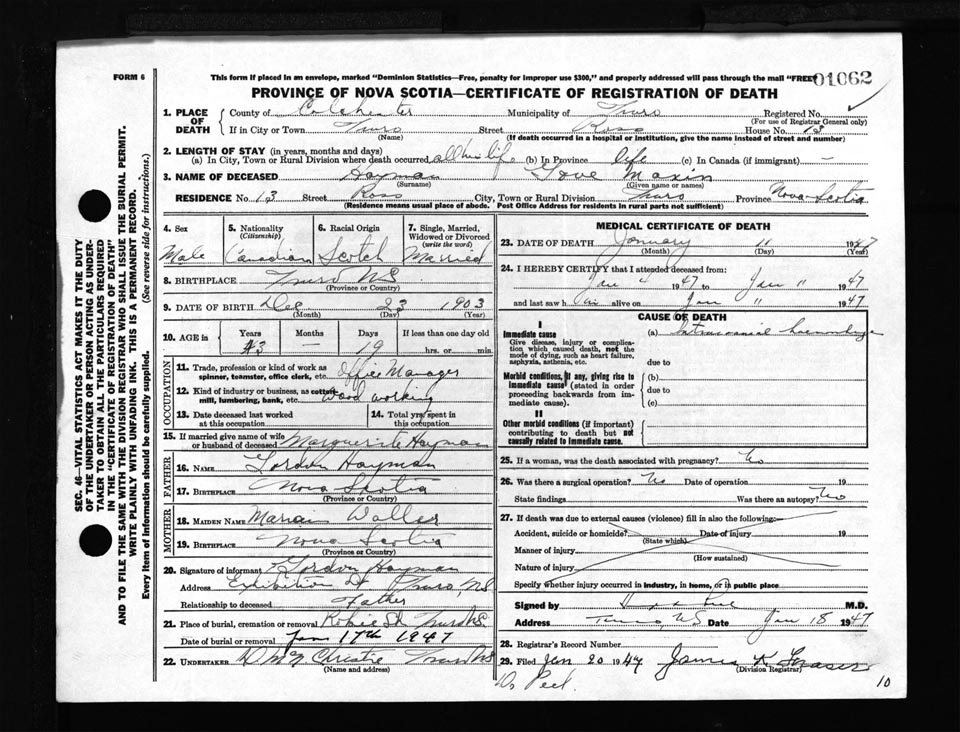 FORM 6
This form if placed in an envelope, marked "Dominion Statistics—Free, penalty for improper use $300," and properly addressed will pass through the mail "FREE"
01062
PROVINCE OF NOVA SCOTIA—CERTIFICATE OF REGISTRATION OF DEATH
1. PLACE OF DEATH
County of Colchester Municipality of Truro Registered No.
(For use of Registrar General only)
If in City or Town Truro Street Ross House No. 13
(Name) (If death occurred in a hospital or institution, give the name instead of street and number)
2. LENGTH OF STAY (in years, months and days)
(a) In City, Town or Rural Division where death occurred all his life (b) In Province life (c) In Canada (if immigrant) —
3. NAME OF DECEASED Hayman Maxin
(Surname) (Given name or names)
RESIDENCE No. 13 Street Ross City, Town or Rural Division Truro Province Nova Scotia
(Residence means usual place of abode. Post Office Address for residents in rural parts not sufficient)
4. Sex
Male
5. Nationality
(Citizenship)
Canadian
6. Racial Origin
Scotch
7. Single, Married, Widowed or Divorced
(write the word)
Married
8. BIRTHPLACE Truro NS
(Province or Country)
9. DATE OF BIRTH Dec 23 1903
(Month) (Day) (Year)
10. AGE in Years Months Days If less than one day old
43 — 19 hrs. or min.
OCCUPATION
11. Trade, profession or kind of work as
spinner, teamster, office clerk, etc. Office Manager
12. Kind of industry or business, as cotton
mill, lumbering, bank, etc. Wood working
13. Date deceased last worked
at this occupation
14. Total yrs. spent in
this occupation
15. If married give name of wife
or husband of deceased Marguerite Hayman
FATHER
16. NAME Gordon Hayman
17. BIRTHPLACE Nova Scotia
(Province or Country)
MOTHER
18. MAIDEN NAME Marian Waller
19. BIRTHPLACE Nova Scotia
(Province or Country)
20. Signature of informant Gordon Hayman
Address Exhibition St Truro, NS
Relationship to deceased Father
21. Place of burial, cremation or removal Robie St Truro NS.
Date of burial or removal Jan 17th 1947
22. UNDERTAKER Christie Truro NS
(Name and address)
MEDICAL CERTIFICATE OF DEATH
23. DATE OF DEATH January 11 1947
(Month) (Day) (Year)
24. I HEREBY CERTIFY that I attended deceased from:
Jan 4 1947 Jan 11 1947
and last saw him alive on Jan 11 1947
CAUSE OF DEATH
I
Immediate cause
Give disease, injury or complication which caused death, not the mode of dying, such as heart failure, asphyxia, asthenia, etc.
(a) Intracranial haemorrhage
due to
Morbid conditions, if any, giving rise to immediate cause (stated in order proceeding backwards from immediate cause).
(b)
due to
(c)
II
Other morbid conditions (if important) contributing to death but not causally related to immediate cause.
25. If a woman, was the death associated with pregnancy? No
26. Was there a surgical operation? No Date of operation 19
State findings Was there an autopsy? No
27. If death was due to external causes (violence) fill in also the following:—
Accident, suicide or homicide? Date of injury 19
(State which)
Manner of injury
(How sustained)
Nature of injury
Specify whether injury occurred in industry, in home, or in public place
Signed by M.D.
Address Truro NS Date Jan 18 1947
28. Registrar's Record Number
29. Filed Jan 20 1947 James K Fraser
(Division Registrar)
Dr Peel.
10
SEC. 46—VITAL STATISTICS ACT MAKES IT THE DUTY
OF THE UNDERTAKER OR PERSON ACTING AS UNDER-
TAKER TO OBTAIN ALL THE PARTICULARS REQUIRED
IN THE "CERTIFICATE OF REGISTRATION OF DEATH"
AND TO FILE THE SAME WITH THE DIVISION REGISTRAR WHO SHALL ISSUE THE BURIAL PERMIT.
WRITE PLAINLY WITH UNFADING INK. THIS IS A PERMANENT RECORD.
Every item of information should be carefully supplied. (See reverse side for instructions.)